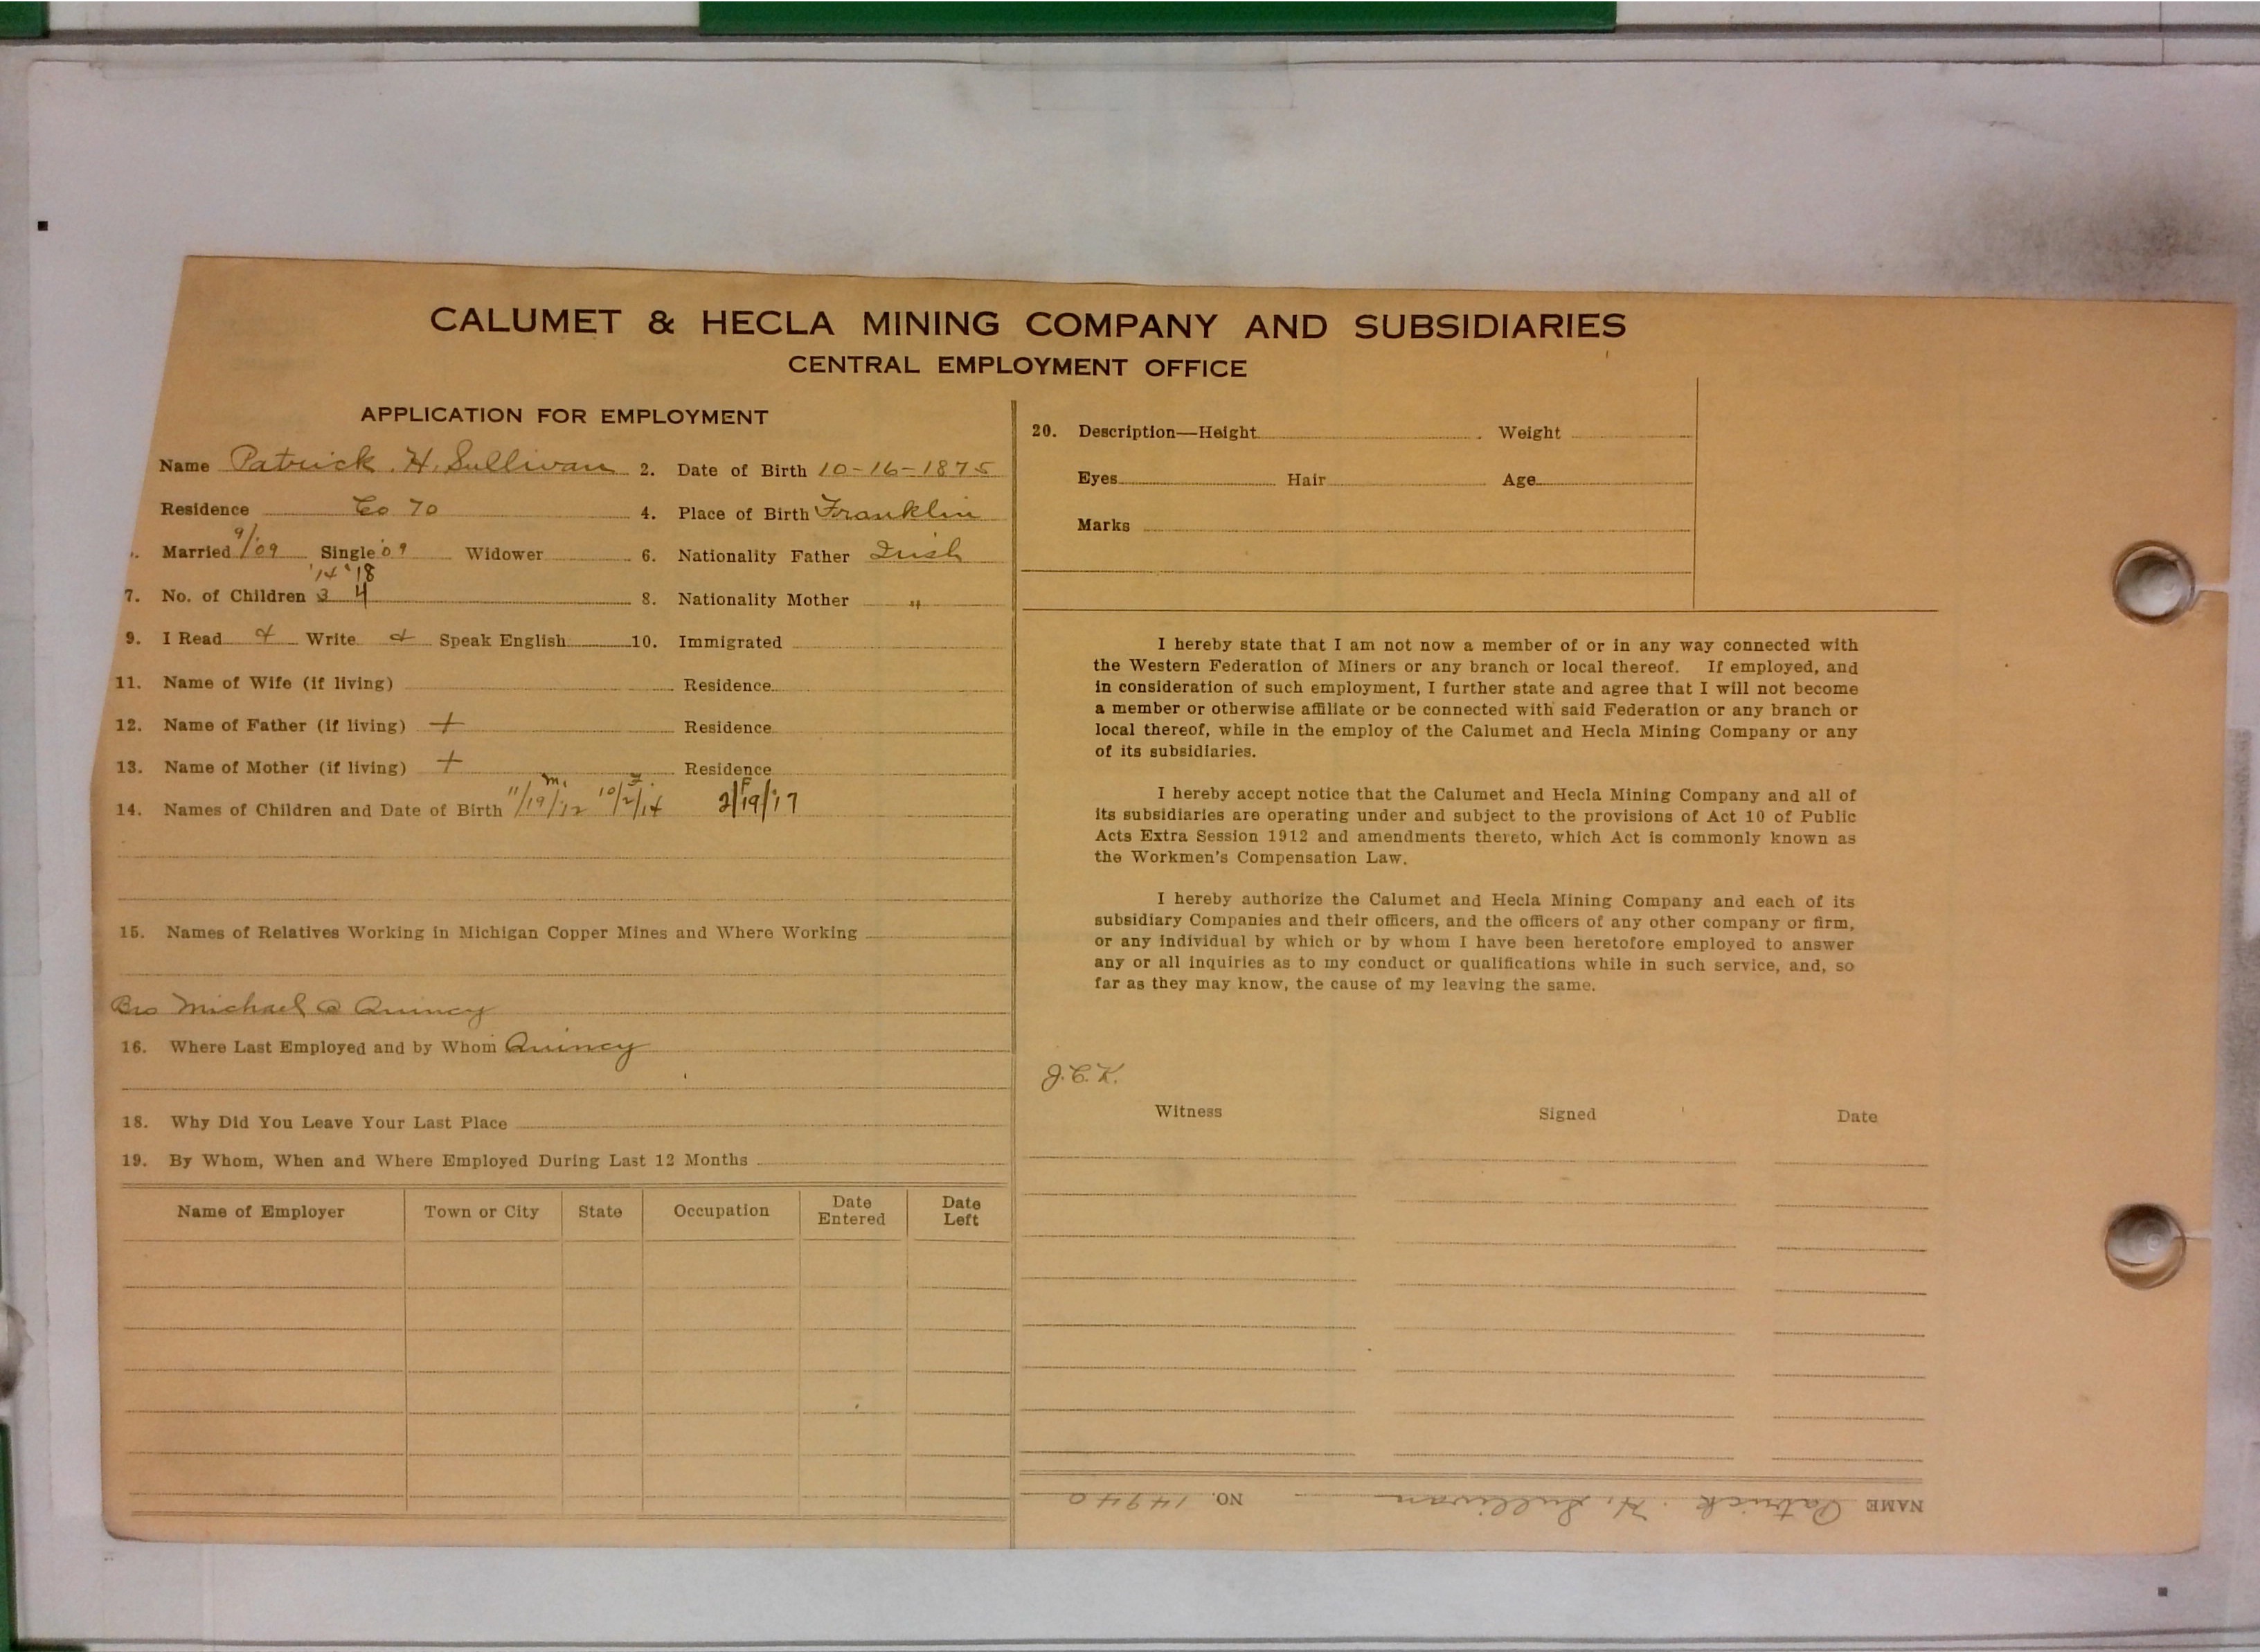 CALUMET & HECLA MINING COMPANY AND SUBSIDIARIES
CENTRAL EMPLOYMENT OFFICE
APPLICATION FOR EMPLOYMENT
Name Patrick. H. Sullivan 2. Date of Birth 10-16-1875
Residence Co 70 4. Place of Birth Franklin
Married 9/09 Single '09 Widower 6. Nationality Father Irish
'14 '18
7. No. of Children 3 4 8. Nationality Mother "
9. I Read & Write & Speak English 10. Immigrated
11. Name of Wife (if living) Residence
12. Name of Father (if living) + Residence
13. Name of Mother (if living) + Residence
m. F. F
14. Names of Children and Date of Birth 11/19/'12 10/2/14 2/19/'17
15. Names of Relatives Working in Michigan Copper Mines and Where Working
Bro Michael @ Quincy
16. Where Last Employed and by Whom Quincy
18. Why Did You Leave Your Last Place
19. By Whom, When and Where Employed During Last 12 Months
Name of Employer Town or City State Occupation Date Entered Date Left
20. Description—Height Weight
Eyes Hair Age
Marks
I hereby state that I am not now a member of or in any way connected with
the Western Federation of Miners or any branch or local thereof. If employed, and
in consideration of such employment, I further state and agree that I will not become
a member or otherwise affiliate or be connected with said Federation or any branch or
local thereof, while in the employ of the Calumet and Hecla Mining Company or any
of its subsidiaries.
I hereby accept notice that the Calumet and Hecla Mining Company and all of
its subsidiaries are operating under and subject to the provisions of Act 10 of Public
Acts Extra Session 1912 and amendments thereto, which Act is commonly known as
the Workmen's Compensation Law.
I hereby authorize the Calumet and Hecla Mining Company and each of its
subsidiary Companies and their officers, and the officers of any other company or firm,
or any individual by which or by whom I have been heretofore employed to answer
any or all inquiries as to my conduct or qualifications while in such service, and, so
far as they may know, the cause of my leaving the same.
J.C.K.
Witness Signed Date
NAME Patrick. H. Sullivan NO. 14940